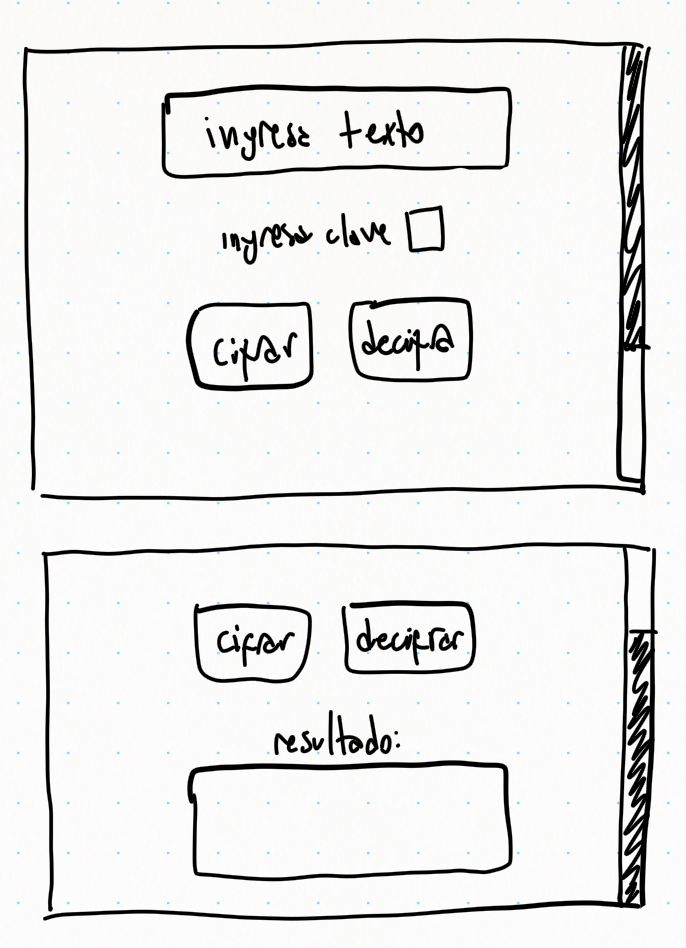 ingresa texto
ingresa clave
cifrar decifra
cifrar decifrar
resultado: